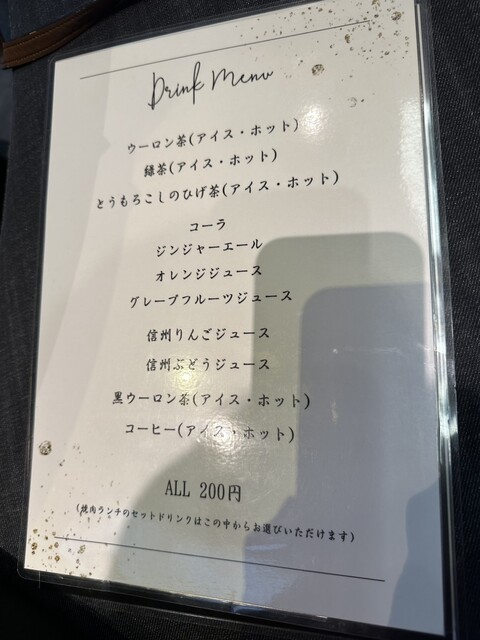 Drink Menu
ウーロン茶(アイス・ホット)
緑茶(アイス・ホット)
とうもろこしのひげ茶(アイス・ホット)
コーラ
ジンジャーエール
オレンジジュース
グレープフルーツジュース
信州りんごジュース
信州ぶどうジュース
黒ウーロン茶(アイス・ホット)
コーヒー(アイス・ホット)
ALL 200円
(焼肉ランチのセットドリンクはこの中からお選びいただけます)